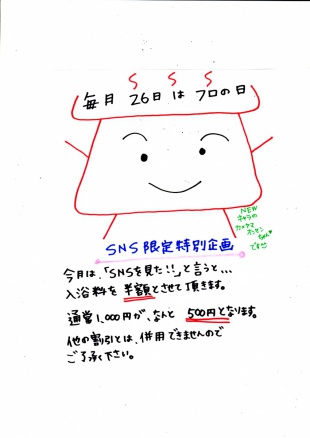 毎月 26日 は フロの日
NEW
キャラの
ちゃん
です!!
SNS限定特別企画
今月は、「SNSを見た!!」と言うと...
入浴料を 半額とさせて頂きます。
通常1,000円が、なんと 500円となります。
他の割引とは、併用できませんので
ご了承下さい。